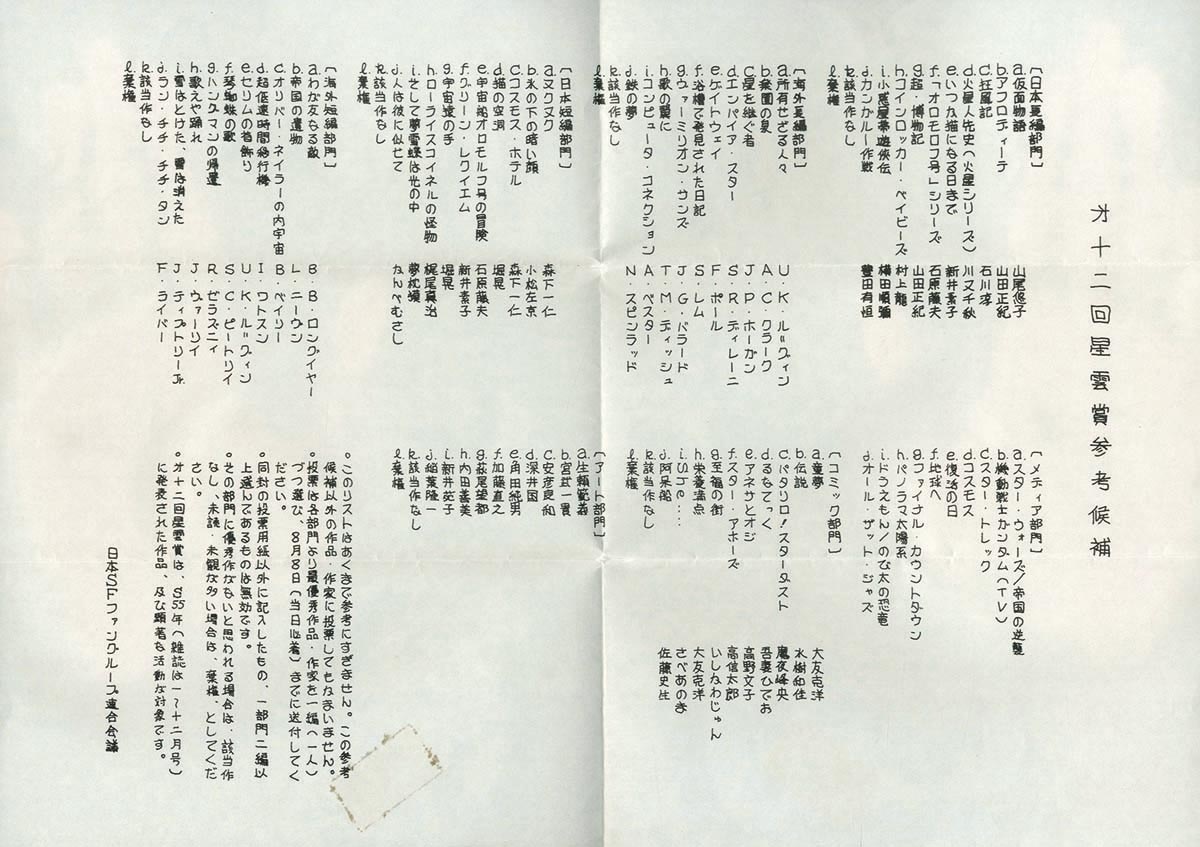 才十二回星雲賞参考候補
[日本長編部門]
a.仮面物語 山尾悠子
b.アフロディーテ 山田正紀
c.狂風記 石川淳
d.火星人先史(火星シリーズ) 川又千秋
e.いつか猫になる日まで 新井素子
f.「オロモルフ号」シリーズ 石原藤夫
g.超・博物記 山田正紀
h.コインロッカー・ベイビーズ 村上龍
i.小惑星帯遊侠伝 横田順彌
j.カンガルー作戦 豊田有恒
k.該当作なし
l.棄権
[海外長編部門]
a.所有せざる人々 U・K・ル=グィン
b.楽園の泉 A・C・クラーク
c.星を継ぐ者 J・P・ホーガン
d.エンパイア・スター S・R・ディレーニ
e.ゲイトウェイ F・ポール
f.浴槽で発見された日記 S・レム
g.ヴァーミリオン・サンズ J・G・バラード
h.歌の翼に T・M・ディッシュ
i.コンピュータ・コネクション A・ベスター
j.鉄の夢 N・スピンラッド
k.該当作なし
l.棄権
[日本短編部門]
a.ヌクヌク 森下一仁
b.氷の下の暗い顔 小松左京
c.コスモス・ホテル 森下一仁
d.猫の空洞 堀晃
e.宇宙船オロモルフ号の冒険 石原藤夫
f.グリーン・レクイエム 新井素子
g.宇宙猿の手 堀晃
h.ローライスコイネルの怪物 梶尾真治
i.そして夢雪蝶は光の中 夢枕獏
j.人は彼に似せて かんべむさし
k.該当作なし
l.棄権
[海外短編部門]
a.わが友なる敵 B・B・ロングイヤー
b.帝国の遺物 L・ニーヴン
c.オリバー・ネイラーの内宇宙 B・ベイリー
d.超低速時間移行機 I・ワトスン
e.セリムの首飾り U・K・ル=グィン
f.琴蜘蛛の歌 S・C・ピートリイ
g.ハングマンの帰還 R・ゼラズニィ
h.歌えや踊れ J・ヴァーリィ
i.雪はとけた、雪は消えた J・ティプトリーJr.
j.ラン・チチ・チチ・タン F・ライバー
k.該当作なし
l.棄権
[メディア部門]
a.スター・ウォーズ/帝国の逆襲
b.機動戦士ガンダム(TV)
c.スター・トレック
d.コスモス
e.復活の日
f.地球へ
g.ファイナル・カウントダウン
h.パノラマ太陽系
i.ドラえもん/のび太の恐竜
j.オール・ザット・ジャズ
[コミック部門]
a.童夢 大友克洋
b.伝説 水樹和佳
c.パタリロ!スターダスト 魔夜峰央
d.るなてっく 吾妻ひでお
e.アネサとオジ 高野文子
f.スター・アホーズ 高信太郎
g.至福の街 いしかわじゅん
h.栄養満点 大友克洋
i.She・・・ さべあのま
j.阿呆船 佐藤史生
k.該当作なし
l.棄権
[アート部門]
a.生頼範義
b.宮武一貴
c.安彦良和
d.深井国
e.角田純男
f.加藤直之
g.萩尾望都
h.内田善美
i.新井苑子
j.稲葉隆一
k.該当作なし
l.棄権
。このリストはあくまで参考にすぎません。この参考
候補以外の作品・作家に投票してもかまいません。
。投票は各部門より最優秀作品・作家を一編(一人)
づつ選び、8月8日(当日必着)までに送付してく
ださい。
。同封の投票用紙以外に記入したもの、一部門二編以
上選んであるものは無効です。
。その部門に優秀作がないと思われる場合は、該当作
なし、未読・未観が多い場合は、棄権、としてくだ
さい。
。才十二回星雲賞は、S55年(雑誌は一~十二月号)
に発表された作品、及び顕著な活動が対象です。
日本SFファングループ連合会議